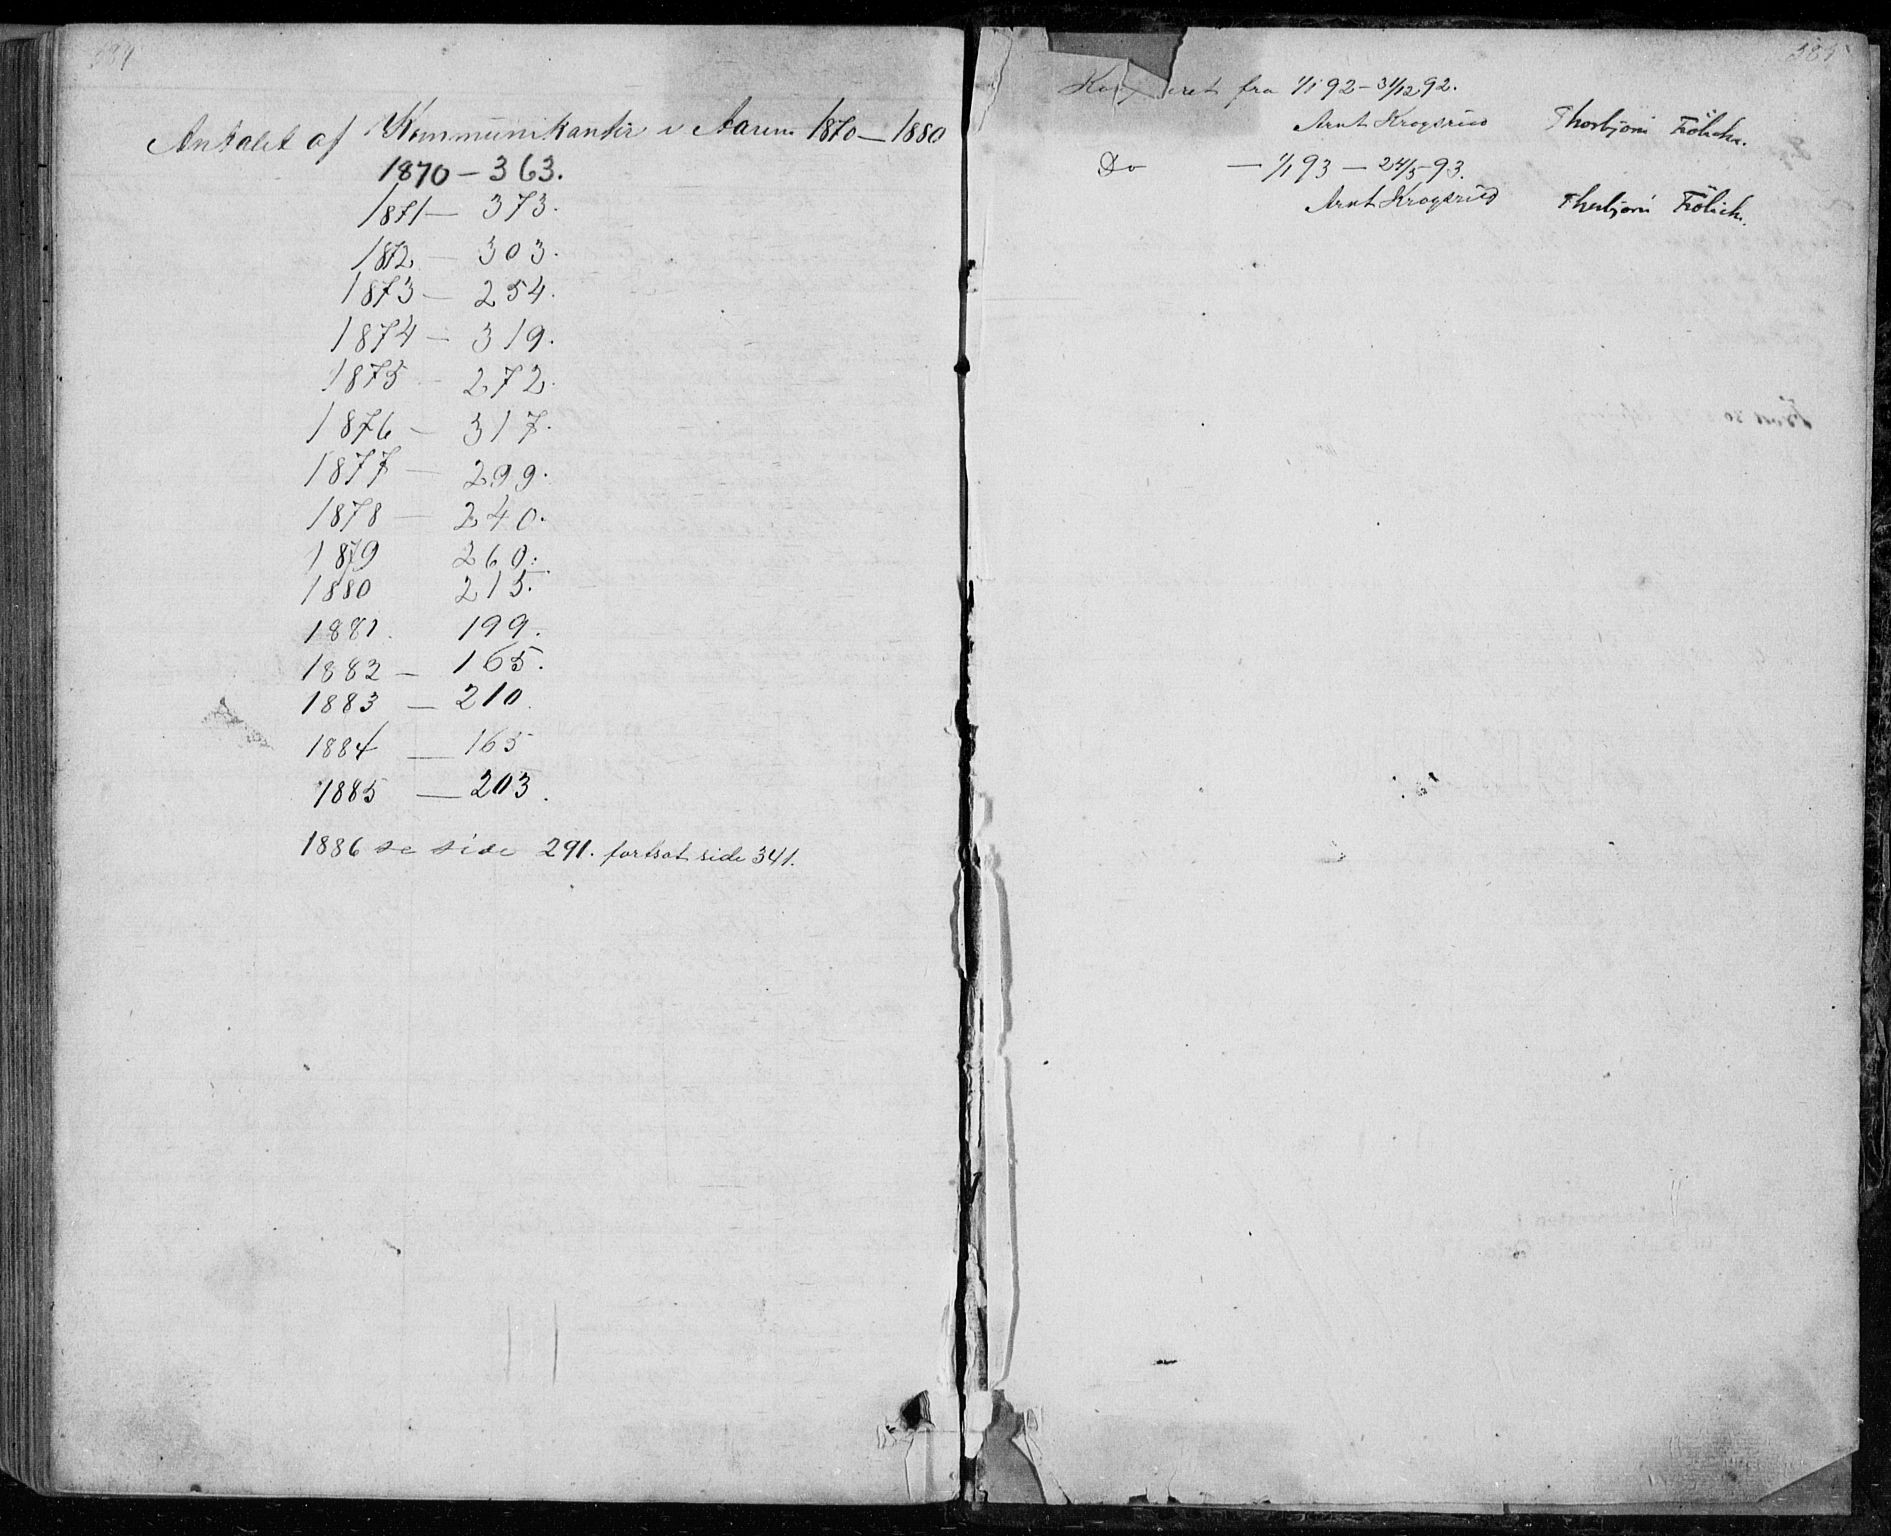 Antalet af Kommunikanter i Aarene 1870–1880
1870 – 363.
1871 – 373.
1872 – 303.
1873 – 254.
1874 – 319.
1875 – 272.
1876 – 317.
1877 – 299.
1878 – 240.
1879 260.
1880 215.
1881. 199.
1882 – 165.
1883 – 210.
1884 – 165
1885 – 203.
1886 se side 291. fortsat side 341.
385
fra 1/1 92 – 31/12 92.
Arnt Krogsrud Thorbjørn Frölich.
Do – 1/1 93 – 24/5 – 93.
Arnt Krogsrud Thorbjørn Frölich.